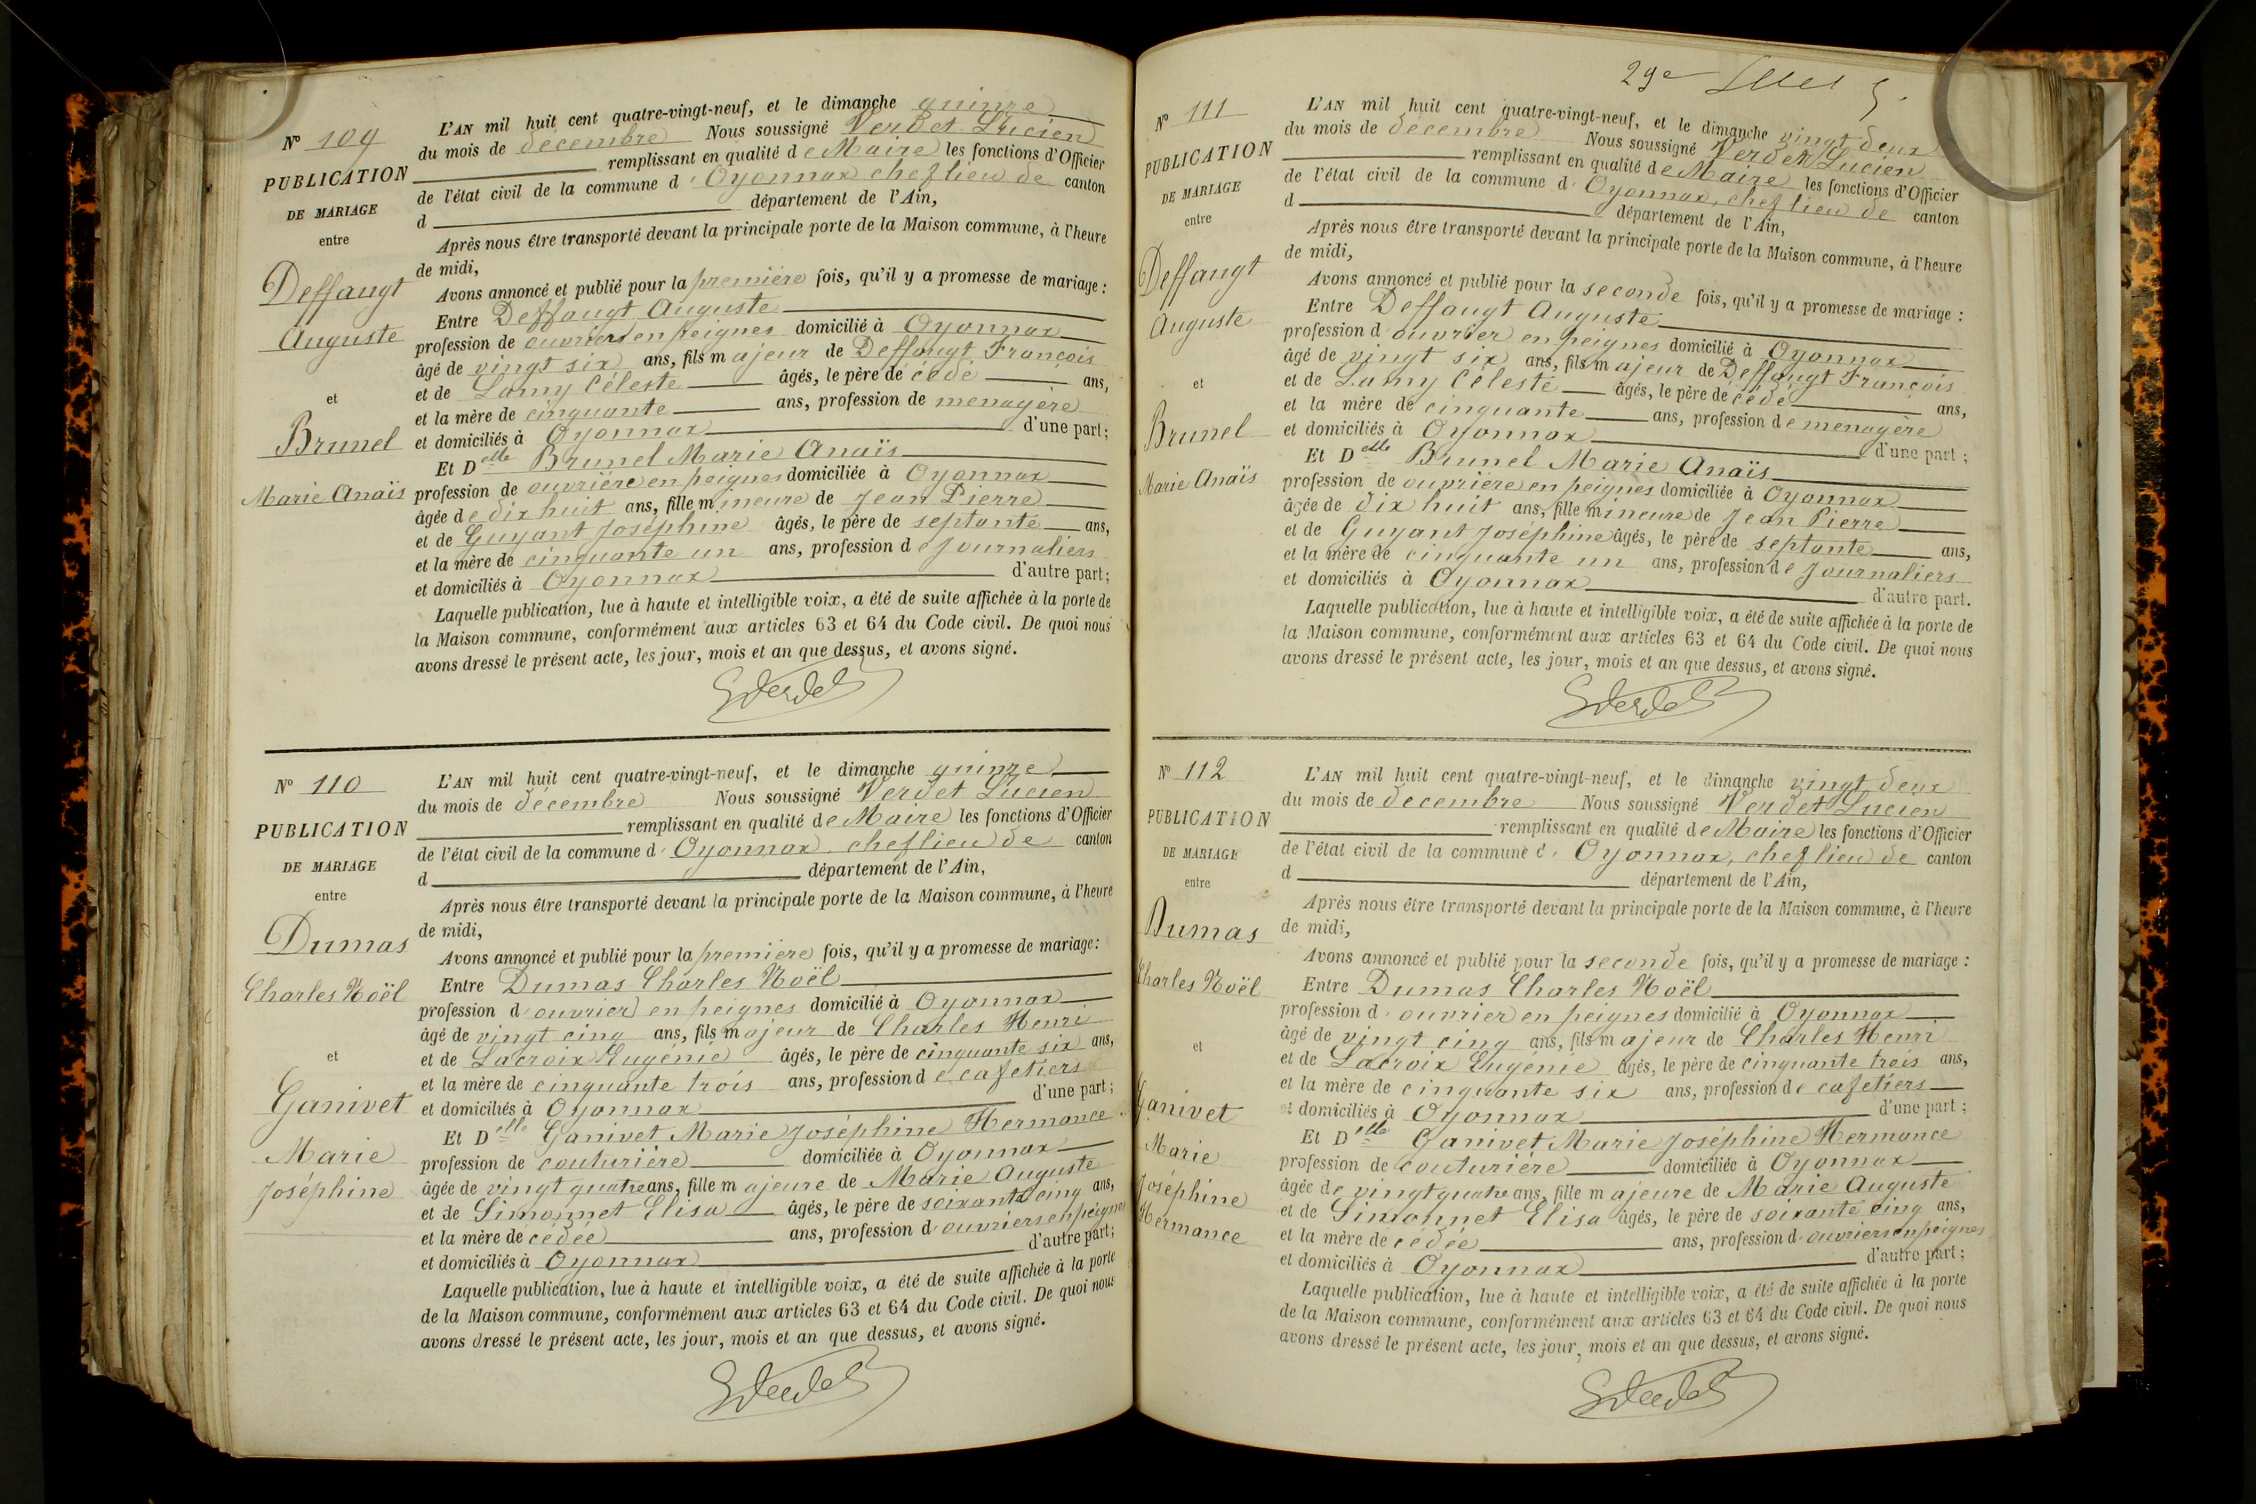 Nº 109
PUBLICATION
DE MARIAGE
entre
Deffaugt
Auguste
et
Brunel
Marie Anaïs
L'AN mil huit cent quatre-vingt-neuf, et le dimanche quinze
du mois de décembre Nous soussigné Verdet Lucien
remplissant en qualité de Maire les fonctions d'Officier
de l'état civil de la commune d'Oyonnax chef lieu de canton
d département de l'Ain,
Après nous être transporté devant la principale porte de la Maison commune, à l'heure
de midi,
Avons annoncé et publié pour la première fois, qu'il y a promesse de mariage :
Entre Deffaugt Auguste
profession de ouvrier en peignes domicilié à Oyonnax
âgé de vingt six ans, fils majeur de Deffaugt François
et de Lamy Céleste âgés, le père de cédé ans,
et la mère de cinquante ans, profession de menagère
et domiciliés à Oyonnax d'une part;
Et Delle Brunel Marie Anaïs
profession de ouvrière en peignes domiciliée à Oyonnax
âgée de dix huit ans, fille mineure de Jean Pierre
et de Guyant Joséphine âgés, le père de septante ans,
et la mère de cinquante un ans, profession de Journaliers
et domiciliés à Oyonnax d'autre part;
Laquelle publication, lue à haute et intelligible voix, a été de suite affichée à la porte de
la Maison commune, conformément aux articles 63 et 64 du Code civil. De quoi nous
avons dressé le présent acte, les jour, mois et an que dessus, et avons signé.
Verdet
Nº 110
PUBLICATION
DE MARIAGE
entre
Dumas
Charles Noël
et
Ganivet
Marie
Joséphine
L'AN mil huit cent quatre-vingt-neuf, et le dimanche quinze
du mois de décembre Nous soussigné Verdet Lucien
remplissant en qualité de Maire les fonctions d'Officier
de l'état civil de la commune d'Oyonnax, chef lieu de canton
d département de l'Ain,
Après nous être transporté devant la principale porte de la Maison commune, à l'heure
de midi,
Avons annoncé et publié pour la première fois, qu'il y a promesse de mariage:
Entre Dumas Charles Noël
profession d'ouvrier en peignes domicilié à Oyonnax
âgé de vingt cinq ans, fils majeur de Charles Henri
et de Lacroix Eugénie âgés, le père de cinquante six ans,
et la mère de cinquante trois ans, profession de cafetiers
et domiciliés à Oyonnax d'une part;
Et Delle Ganivet Marie Joséphine Hermance
profession de couturière domiciliée à Oyonnax
âgée de vingt quatre ans, fille majeure de Marie Auguste
et de Simonnet Elisa âgés, le père de soixante cinq ans,
et la mère de cédée ans, profession d'ouvriers en peignes
et domiciliés à Oyonnax d'autre part;
Laquelle publication, lue à haute et intelligible voix, a été de suite affichée à la porte
de la Maison commune, conformément aux articles 63 et 64 du Code civil. De quoi nous
avons dressé le présent acte, les jour, mois et an que dessus, et avons signé.
Verdet
29e
Nº 111
PUBLICATION
DE MARIAGE
entre
Deffaugt
Auguste
et
Brunel
Marie Anaïs
L'AN mil huit cent quatre-vingt-neuf, et le dimanche vingt deux
du mois de décembre Nous soussigné Verdet Lucien
remplissant en qualité de Maire les fonctions d'Officier
de l'état civil de la commune d'Oyonnax, chef lieu de canton
d département de l'Ain,
Après nous être transporté devant la principale porte de la Maison commune, à l'heure
de midi,
Avons annoncé et publié pour la seconde fois, qu'il y a promesse de mariage :
Entre Deffaugt Auguste
profession d'ouvrier en peignes domicilié à Oyonnax
âgé de vingt six ans, fils majeur de Deffaugt François
et de Lamy Céleste âgés, le père de cédé ans,
et la mère de cinquante ans, profession de menagère
et domiciliés à Oyonnax d'une part;
Et Delle Brunel Marie Anaïs
profession de ouvrière en peignes domiciliée à Oyonnax
âgée de dix huit ans, fille mineure de Jean Pierre
et de Guyant Joséphine âgés, le père de septante ans,
et la mère de cinquante un ans, profession de Journaliers
et domiciliés à Oyonnax d'autre part.
Laquelle publication, lue à haute et intelligible voix, a été de suite affichée à la porte de
la Maison commune, conformément aux articles 63 et 64 du Code civil. De quoi nous
avons dressé le présent acte, les jour, mois et an que dessus, et avons signé.
Verdet
Nº 112
PUBLICATION
DE MARIAGE
entre
Dumas
Charles Noël
et
Ganivet
Marie
Joséphine
Hermance
L'AN mil huit cent quatre-vingt-neuf, et le dimanche vingt deux
du mois de décembre Nous soussigné Verdet Lucien
remplissant en qualité de Maire les fonctions d'Officier
de l'état civil de la commune d'Oyonnax, chef lieu de canton
d département de l'Ain,
Après nous être transporté devant la principale porte de la Maison commune, à l'heure
de midi,
Avons annoncé et publié pour la seconde fois, qu'il y a promesse de mariage :
Entre Dumas Charles Noël
profession d'ouvrier en peignes domicilié à Oyonnax
âgé de vingt cinq ans, fils majeur de Charles Henri
et de Lacroix Eugénie âgés, le père de cinquante trois ans,
et la mère de cinquante six ans, profession de cafetiers
et domiciliés à Oyonnax d'une part;
Et Delle Ganivet Marie Joséphine Hermance
profession de couturière domiciliée à Oyonnax
âgée de vingt quatre ans, fille majeure de Marie Auguste
et de Simonnet Elisa âgés, le père de soixante cinq ans,
et la mère de cédée ans, profession d'ouvriers en peignes
et domiciliés à Oyonnax d'autre part;
Laquelle publication, lue à haute et intelligible voix, a été de suite affichée à la porte
de la Maison commune, conformément aux articles 63 et 64 du Code civil. De quoi nous
avons dressé le présent acte, les jour, mois et an que dessus, et avons signé.
Verdet